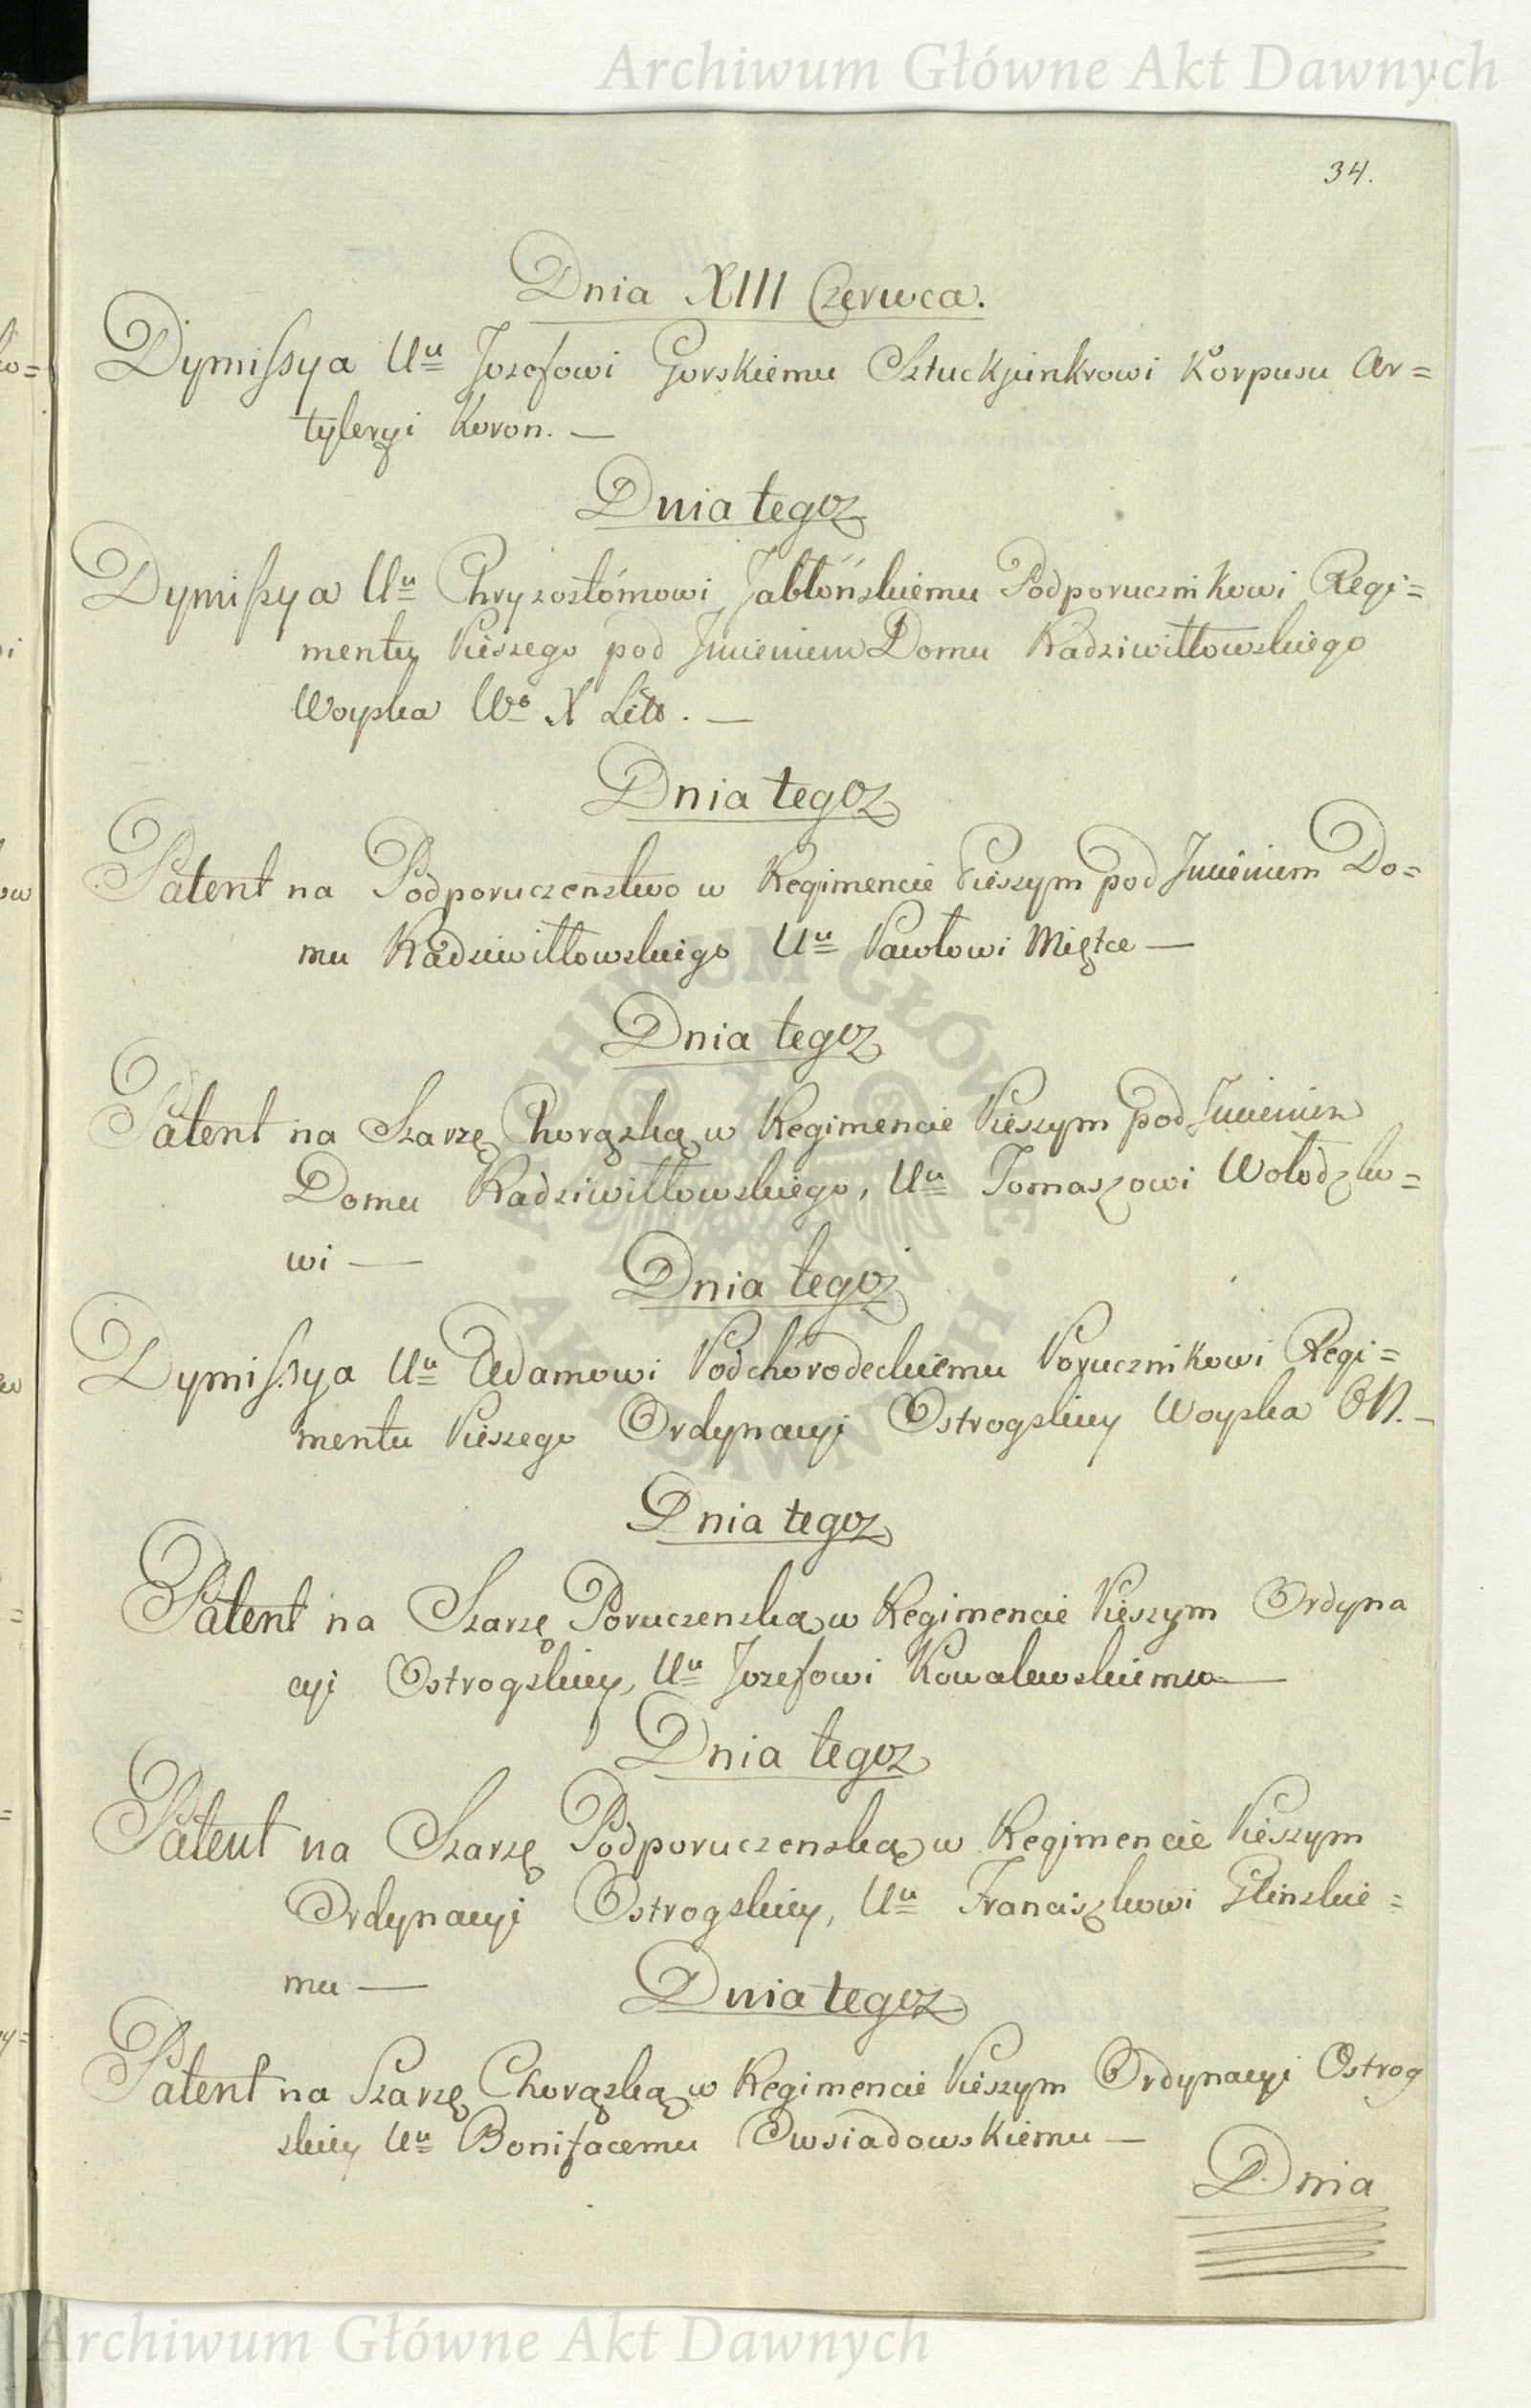 Archiwum Główne Akt Dawnych
34.
Dnia XIII Czerwca.
Dymissya Uu Jozefowi Gorskiemu Sztuckjunkrowi Korpusu Ar=
tyleryi Koron. —
Dnia tegoz
Dymissya Uu Chryzostómowi Jabłóńskiemu Podporucznikowi Regi=
mentu Pieszego pod Jmieniem Domu Radziwiłłowskiego
Woyska Wo X Litt. —
Dnia tegoz
Patent na Podporuczenstwo w Regimencie Pieszym pod Jmieniem Do=
mu Radziwiłłowskiego Uu Pawłowi Miętce —
Dnia tegoz
Patent na Szarzę Chorązką w Regimencie Pieszym pod Jmieniem
Domu Radziwiłłowskiego, Uu Tomaszowi Wołodzko=
wi —
Dnia tegoz
Dymissya Uu Adamowi Podchorodeckiemu Porucznikowi Regi=
mentu Pieszego Ordynacyi Ostrogskiey Woyska ON. —
Dnia tegoz
Patent na Szarzę Poruczenską w Regimencie Pieszym Ordyna
cyi Ostrogskiey, Uu Jozefowi Kowalewskiemu —
Dnia tegoz
Patent na Szarzę Podporuczenską w Regimencie Pieszym
Ordynacyi Ostrogskiey, Uu Franciszkowi Glinskie=
mu —
Dnia tegoz
Patent na Szarzę Chorązką w Regimencie Pieszym Ordynacyi Ostrog
skiey Uu Bonifacemu Owsiadowskiemu —
Dnia
ARCHIWUM GŁÓWNE · AKT DAWNYCH ·
Archiwum Główne Akt Dawnych